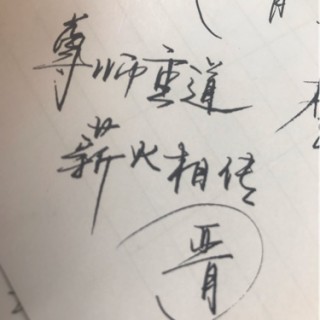 尊师重道
薪火相传